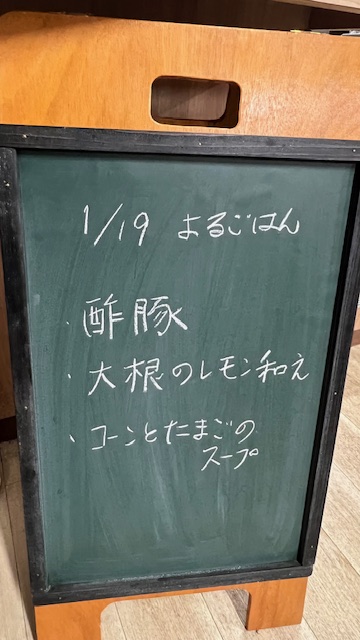 1/19 よるごはん
・酢豚
・大根のレモン和え
・コーンとたまごの
スープ